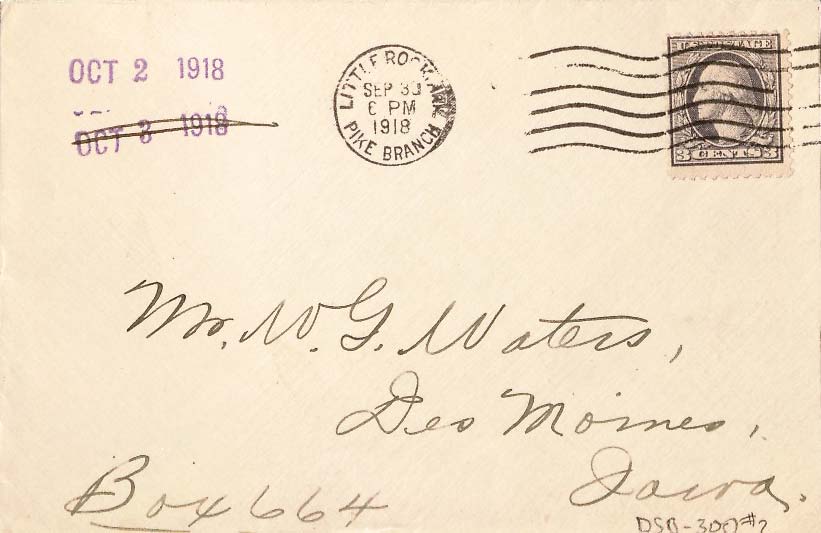 OCT 2 1918
OCT 3 1918
LITTLE ROCK, ARK.
SEP 30
6 PM
1918
PIKE BRANCH
3 CENTS 3
Mr. W. G. Waters,
Des Moines,
Iowa.
Box 664
DSB-300#2